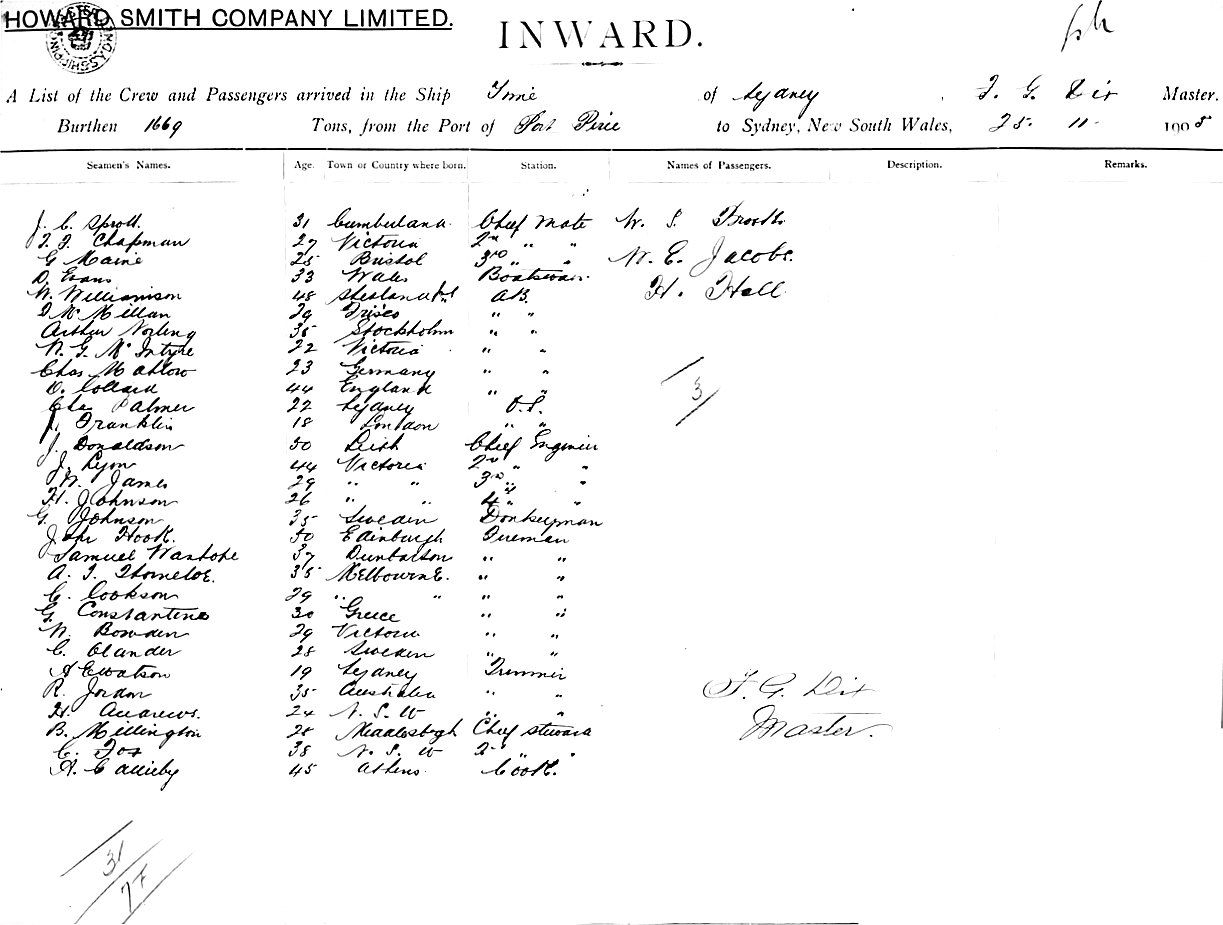 HOWARD SMITH COMPANY LIMITED.
INWARD.
A List of the Crew and Passengers arrived in the Ship Tyrie of Sydney, F. G. Dix Master.
Burthen 1669 Tons, from the Port of Port Pirie to Sydney, New South Wales, 25. 11. 1905
Seamen's Names. Age. Town or Country where born. Station. Names of Passengers. Description. Remarks.
J. C. Sprott. 31 Cumberland. Chief Mate W. S. 
F. J. Chapman 27 Victoria 2nd " "
G Maine 25 Bristol 3rd " " W. E. Jacobs.
D. Evans 33 Wales Boatswain
W. Williamson 48 Shetland A.B. H. Hall
D McMillan 29 Frisco " "
Arthur Norling 35 Stockholm " "
N. G. McIntyre 22 Victoria " "
Chas Mahlow 23 Germany " "
O. Collard 44 England " "
Palmer 22 Sydney O.S.
J. Franklin 18 London " "
3
J. Donaldson 50 Leith Chief Engineer
J. Lyon 44 Victoria 2nd " "
W. James 29 " " 3rd " "
H. Johnson 26 " " 4th " "
G. Johnson 35 Sweden Donkeyman
Hook. 50 Edinburgh Fireman
Samuel 37 Dumbarton " "
A. J. Thorneloe. 35 Melbourne. " "
C. Cookson 29 " " " "
G. Constantine 30 Greece " "
W. Bowden 29 Victoria " "
C. Olander 28 Sweden " "
A E Watson 19 Sydney Trimmer
R. Jordon 35 Australia " "
H. Andrews. 24 N. S. W " "
B. Millington 28 Middlesbogh Chief Steward
C. Fox 38 N. S. W 2nd " "
A. 45 Athens. Cook.
F. G. Dix
Master.
31